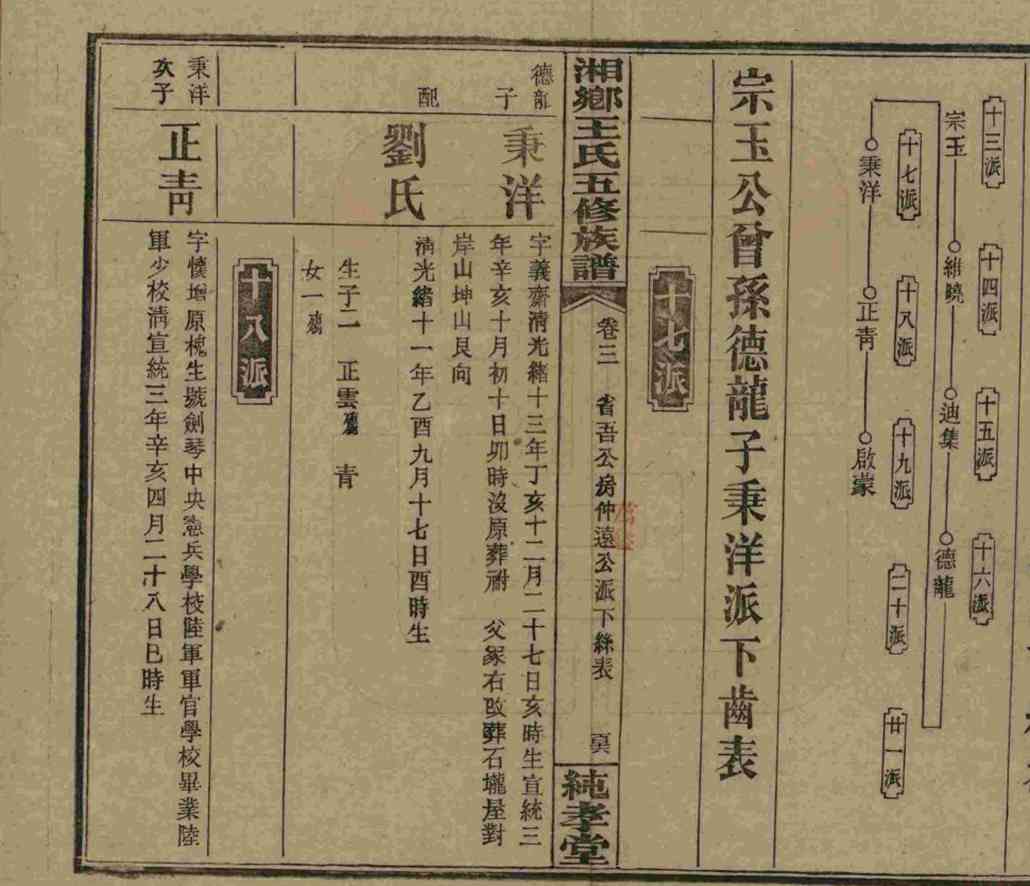 十三派
十四派
十五派
十六派
宗玉
維曉
迪集
德龍
十七派
十八派
十九派
二十派
廿一派
秉洋
正靑
啟蒙
宗玉公曾孫德龍子秉洋派下齒表
十七派
湘鄉王氏五修族譜
卷三
省吾公房仲遠公派下絲表
純孝堂
德龍
子
秉洋
字義齋淸光緖十三年丁亥十二月二十七日亥時生宣統三
年辛亥十月初十日卯時沒原葬祔 父冢右改葬石壠屋對
岸山坤山艮向
配
劉氏
淸光緖十一年乙酉九月十七日酉時生
生子二 正雲殤 靑
女一殤
十八派
秉洋
次子
正靑
字懷增原槐生號劍琴中央憲兵學校陸軍軍官學校畢業陸
軍少校淸宣統三年辛亥四月二十八日巳時生